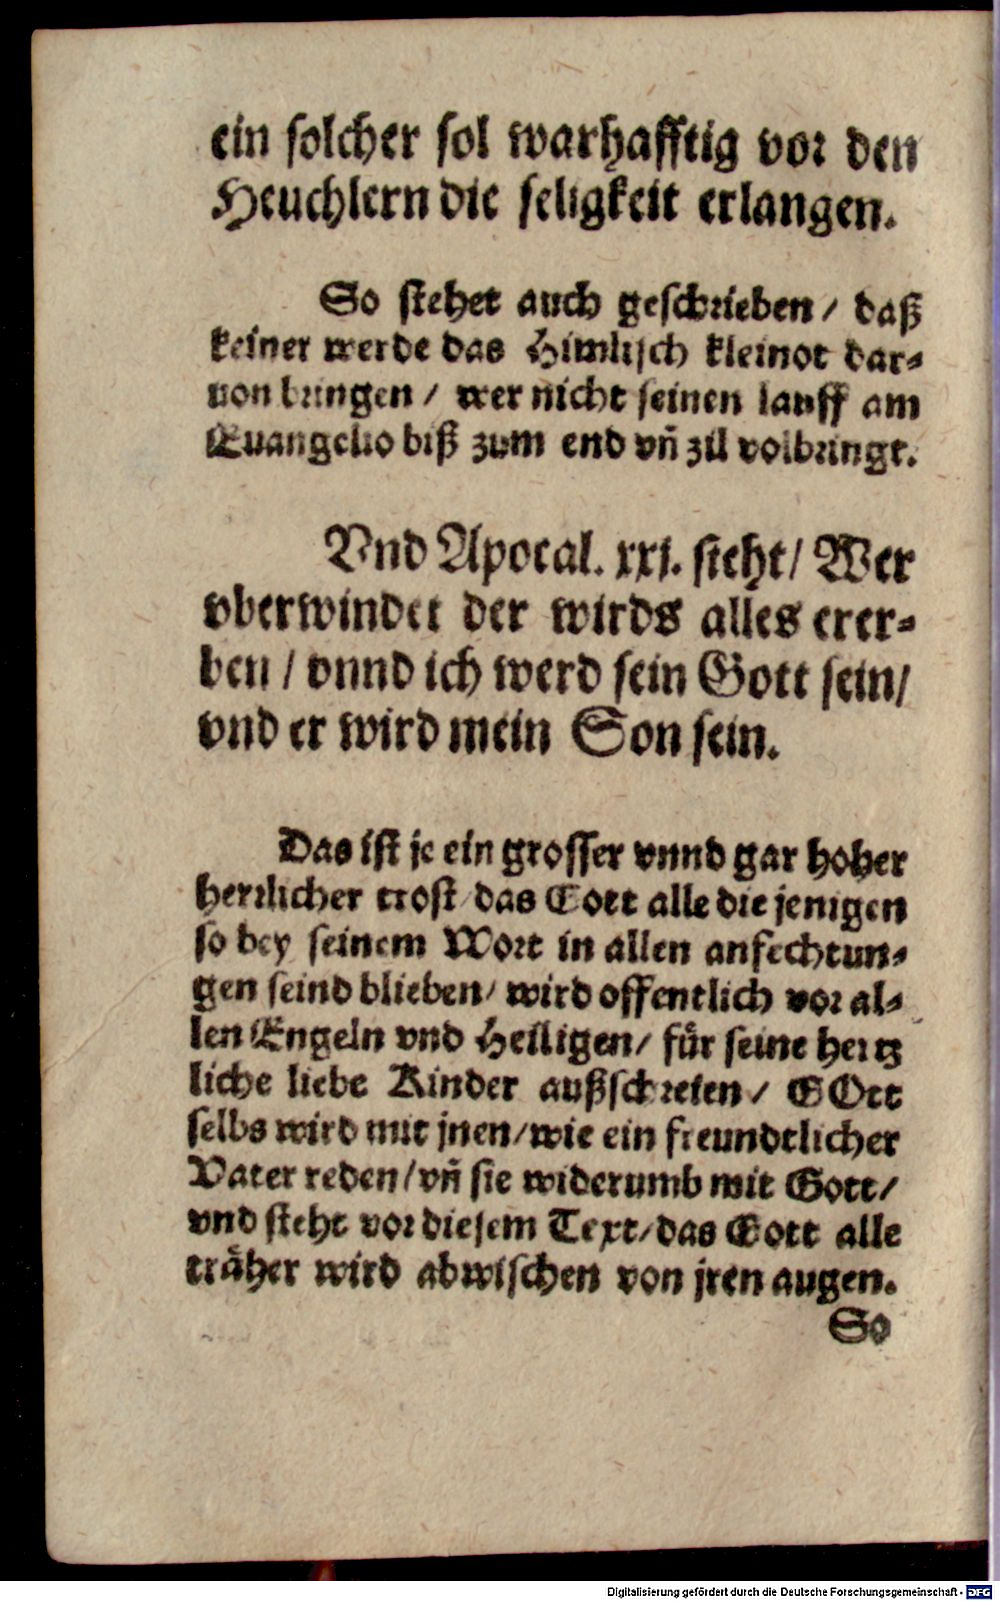 ein solcher sol warhafftig vor den
Heuchlern die seligkeit erlangen.
So stehet auch geschrieben / daß
keiner werde das Himlisch kleinot dar-
von bringen / wer nicht seinen lauff am
Euangelio biß zum end vñ zil volbringt.
Vnd Apocal. xxj. steht / Wer
vberwindet der wirds alles erer-
ben / vnnd ich werd sein Gott sein /
vnd er wird mein Son sein.
Das ist je ein grosser vnnd gar hoher
herrlicher trost / das Gott alle die jenigen
so bey seinem Wort in allen anfechtun-
gen seind blieben / wird offentlich vor al-
len Engeln vnd Heiligen / für seine hertz
liche liebe Kinder außschreien / GOtt
selbs wird mit jnen / wie ein freundtlicher
Vater reden / vñ sie widerumb mit Gott /
vnd steht vor diesem Text / das Gott alle
träher wird abwischen von jren augen.
So
Digitalisierung gefördert durch die Deutsche Forschungsgemeinschaft - DFG